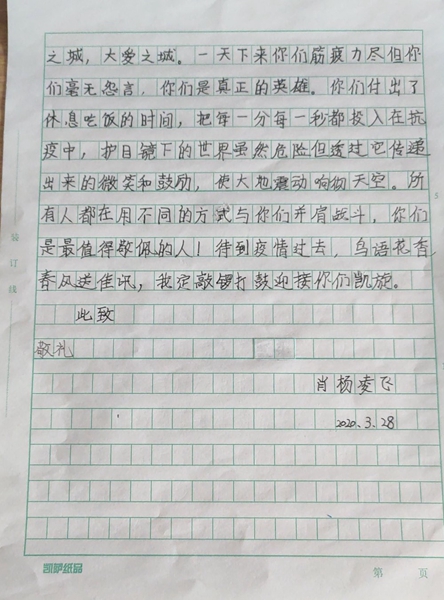 之城，大爱之城。一天下来你们筋疲力尽但你
们毫无怨言，你们是真正的英雄。你们付出了
休息吃饭的时间，把每一分每一秒都投入在抗
疫中，护目镜下的世界虽然危险但透过它传递
出来的微笑和鼓励，使大地震动响彻天空。所
有人都在用不同的方式与你们并肩战斗，你们
是最值得敬佩的人！待到疫情过去，鸟语花香
春风送佳讯，我定敲锣打鼓迎接你们凯旋。
此致
敬礼
肖杨凌飞
2020.3.28
装订线
凯萨纸品
第 页